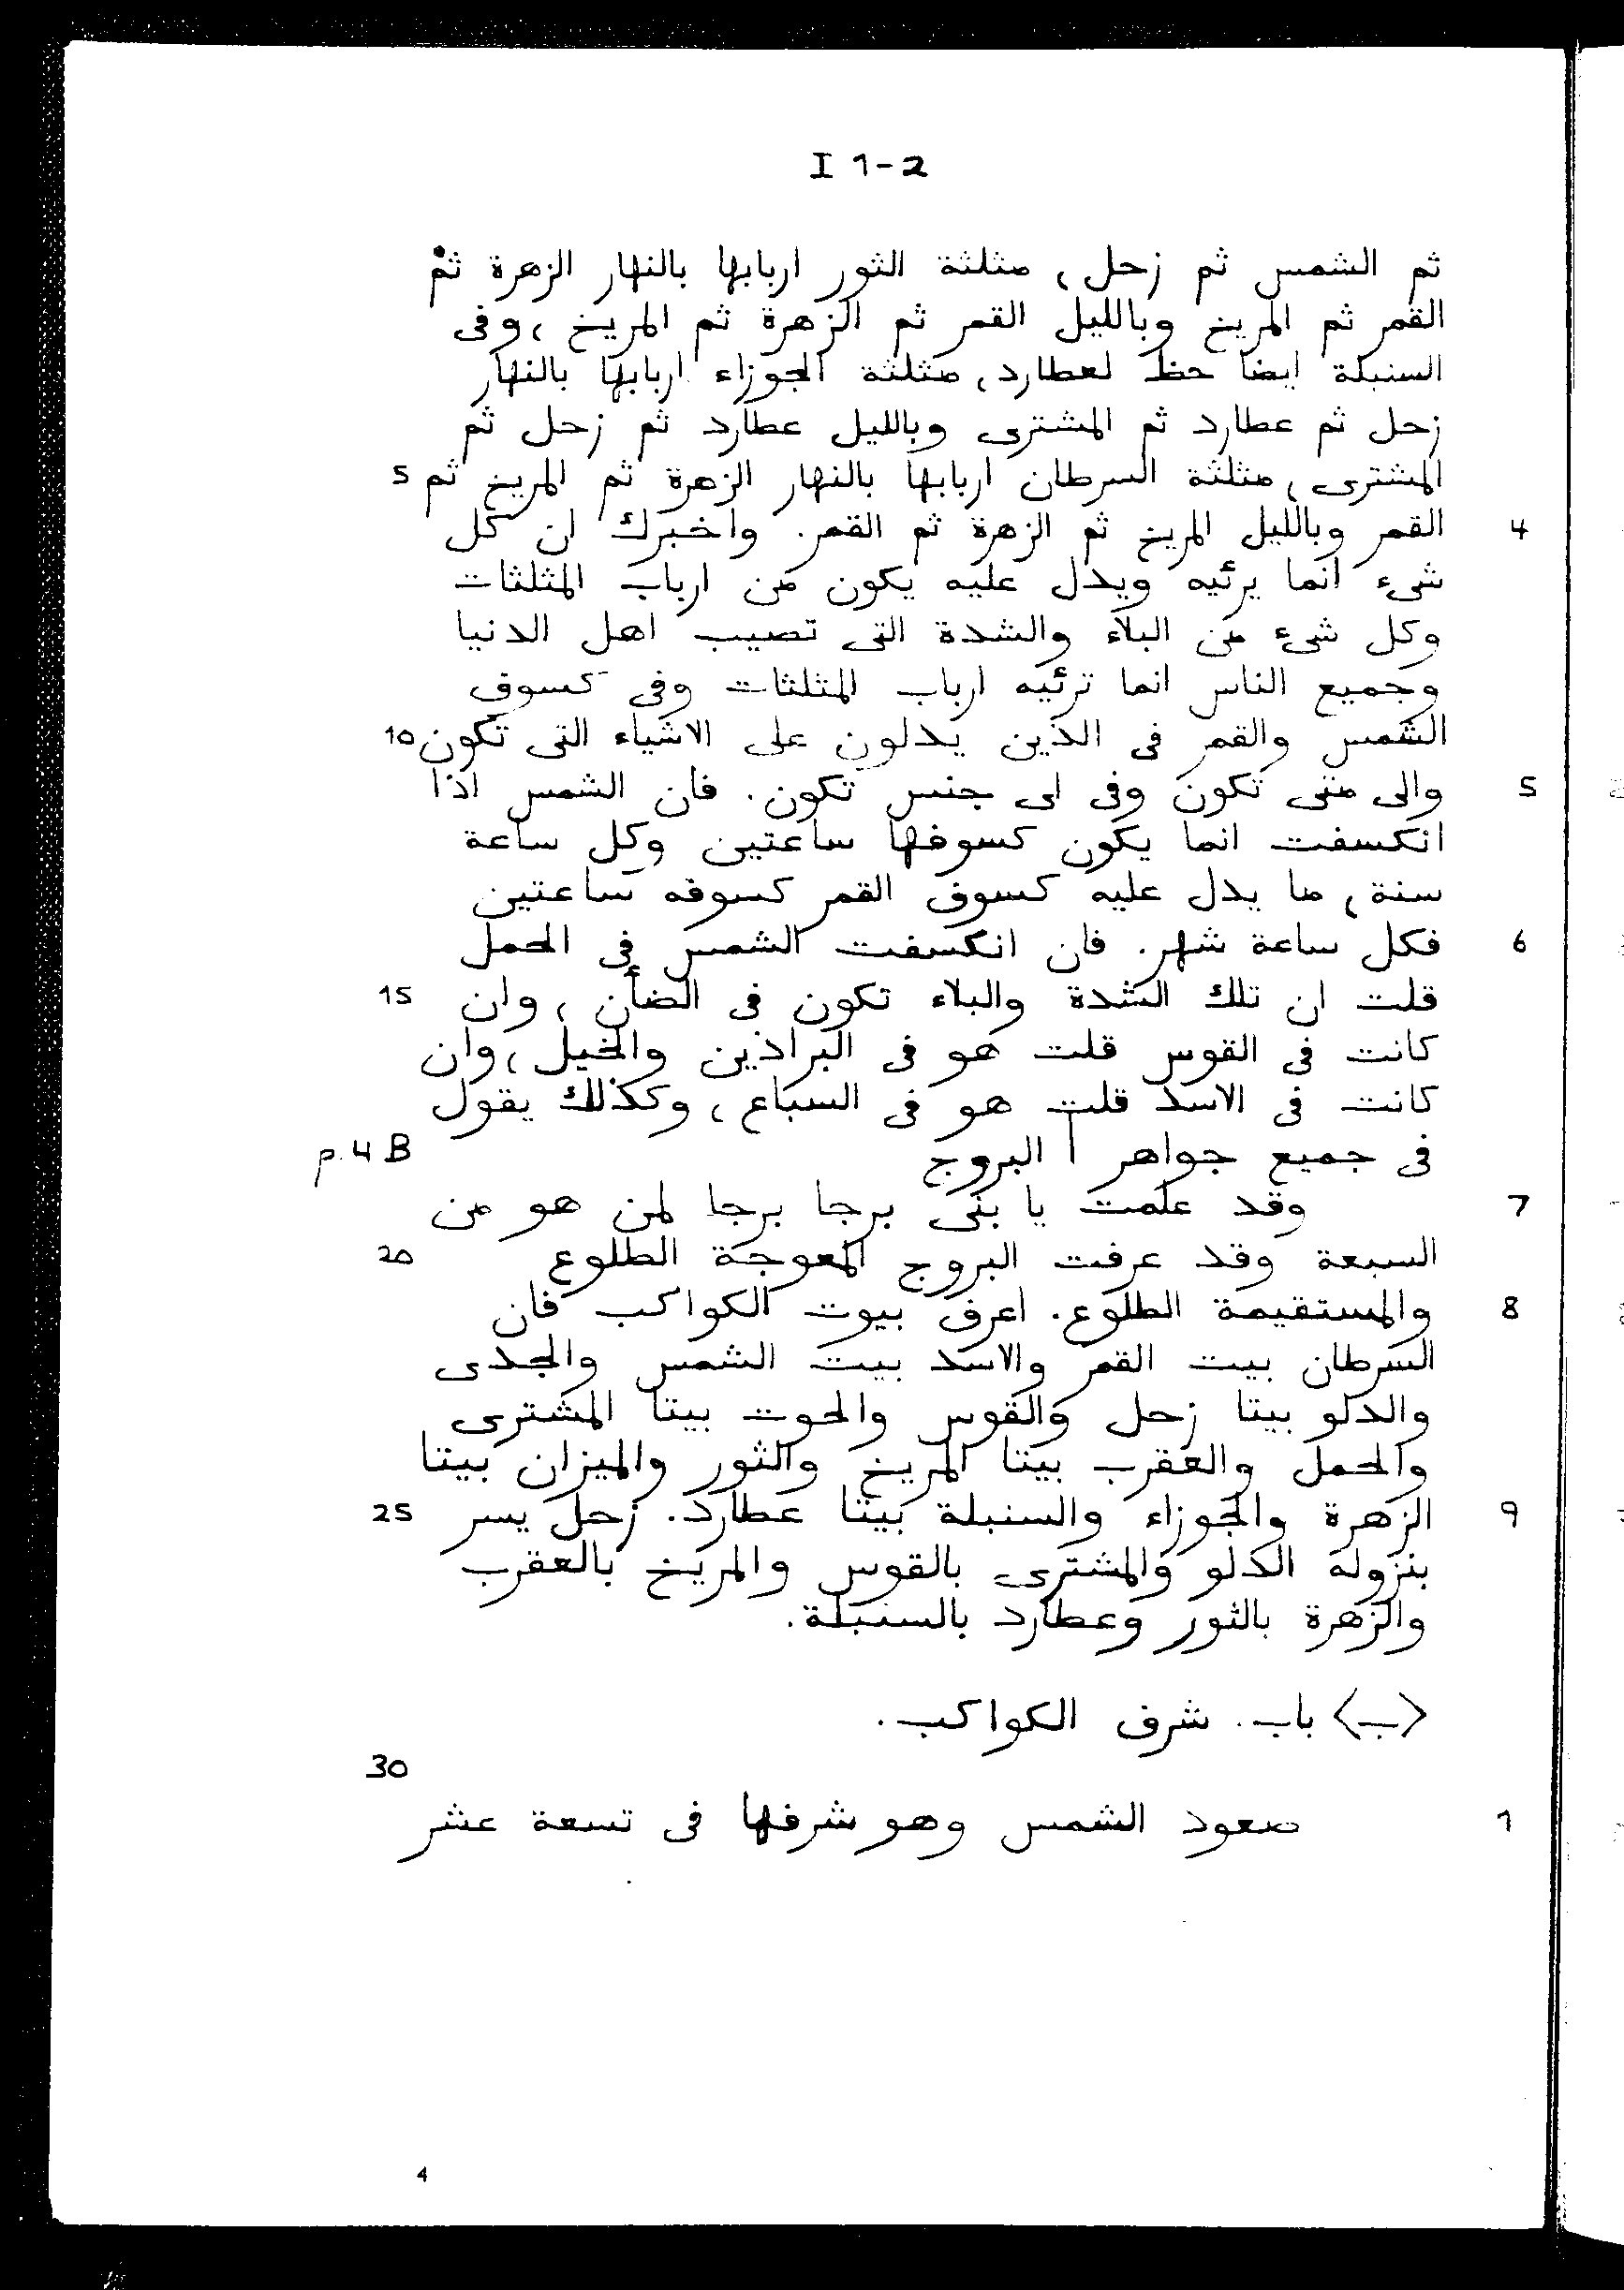 I 1-2
ثم الشمس ثم زحل، مثلثة الثور اربابها بالنهار الزهرة ثم
القمر ثم المريخ وبالليل القمر ثم الزهرة ثم المريخ، وفى
السنبلة ايضا حظ لعطارد، مثلثة الجوزاء اربابها بالنهار
زحل ثم عطارد ثم المشترى وبالليل عطارد ثم زحل ثم
المشترى، مثلثة السرطان اربابها بالنهار الزهرة ثم المريخ ثم 5
4 القمر وبالليل المريخ ثم الزهرة ثم القمر. واخبرك ان كل
شىء انما يرئيه ويدل عليه يكون من ارباب المثلثات
وكل شىء من البلاء والشدة التى تصيب اهل الدنيا
وجميع الناس انما ترئيه ارباب المثلثات وفى كسوف
الشمس والقمر فى الذين يدلون على الاشياء التى تكون 10
5 والى متى تكون وفى اى جنس تكون. فان الشمس اذا
انكسفت انما يكون كسوفها ساعتين وكل ساعة
سنة، ما يدل عليه كسوف القمر كسوفه ساعتين
6 فكل ساعة شهر. فان انكسفت الشمس فى الحمل
قلت ان تلك الشدة والبلاء تكون فى الضأن، وان 15
كانت فى القوس قلت هو فى البراذين والخيل، وان
كانت فى الاسد قلت هو فى السباع، وكذلك يقول
فى جميع جواهر | البروج p. 4 B
7 وقد علمت يا بنى برجا برجا لمن هو من
السبعة وقد عرفت البروج المعوجة الطلوع 20
8 والمستقيمة الطلوع. اعرف بيوت الكواكب فان
السرطان بيت القمر والاسد بيت الشمس والجدى
والدلو بيتا زحل والقوس والحوت بيتا المشترى
والحمل والعقرب بيتا المريخ والثور والميزان بيتا
9 الزهرة والجوزاء والسنبلة بيتا عطارد. زحل يسر 25
بنزوله الدلو والمشترى بالقوس والمريخ بالعقرب
والزهرة بالثور وعطارد بالسنبلة.
<ب> باب. شرف الكواكب.
30
1 صعود الشمس وهو شرفها فى تسعة عشر
4